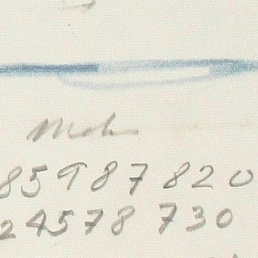 Moh
85987820
24578730